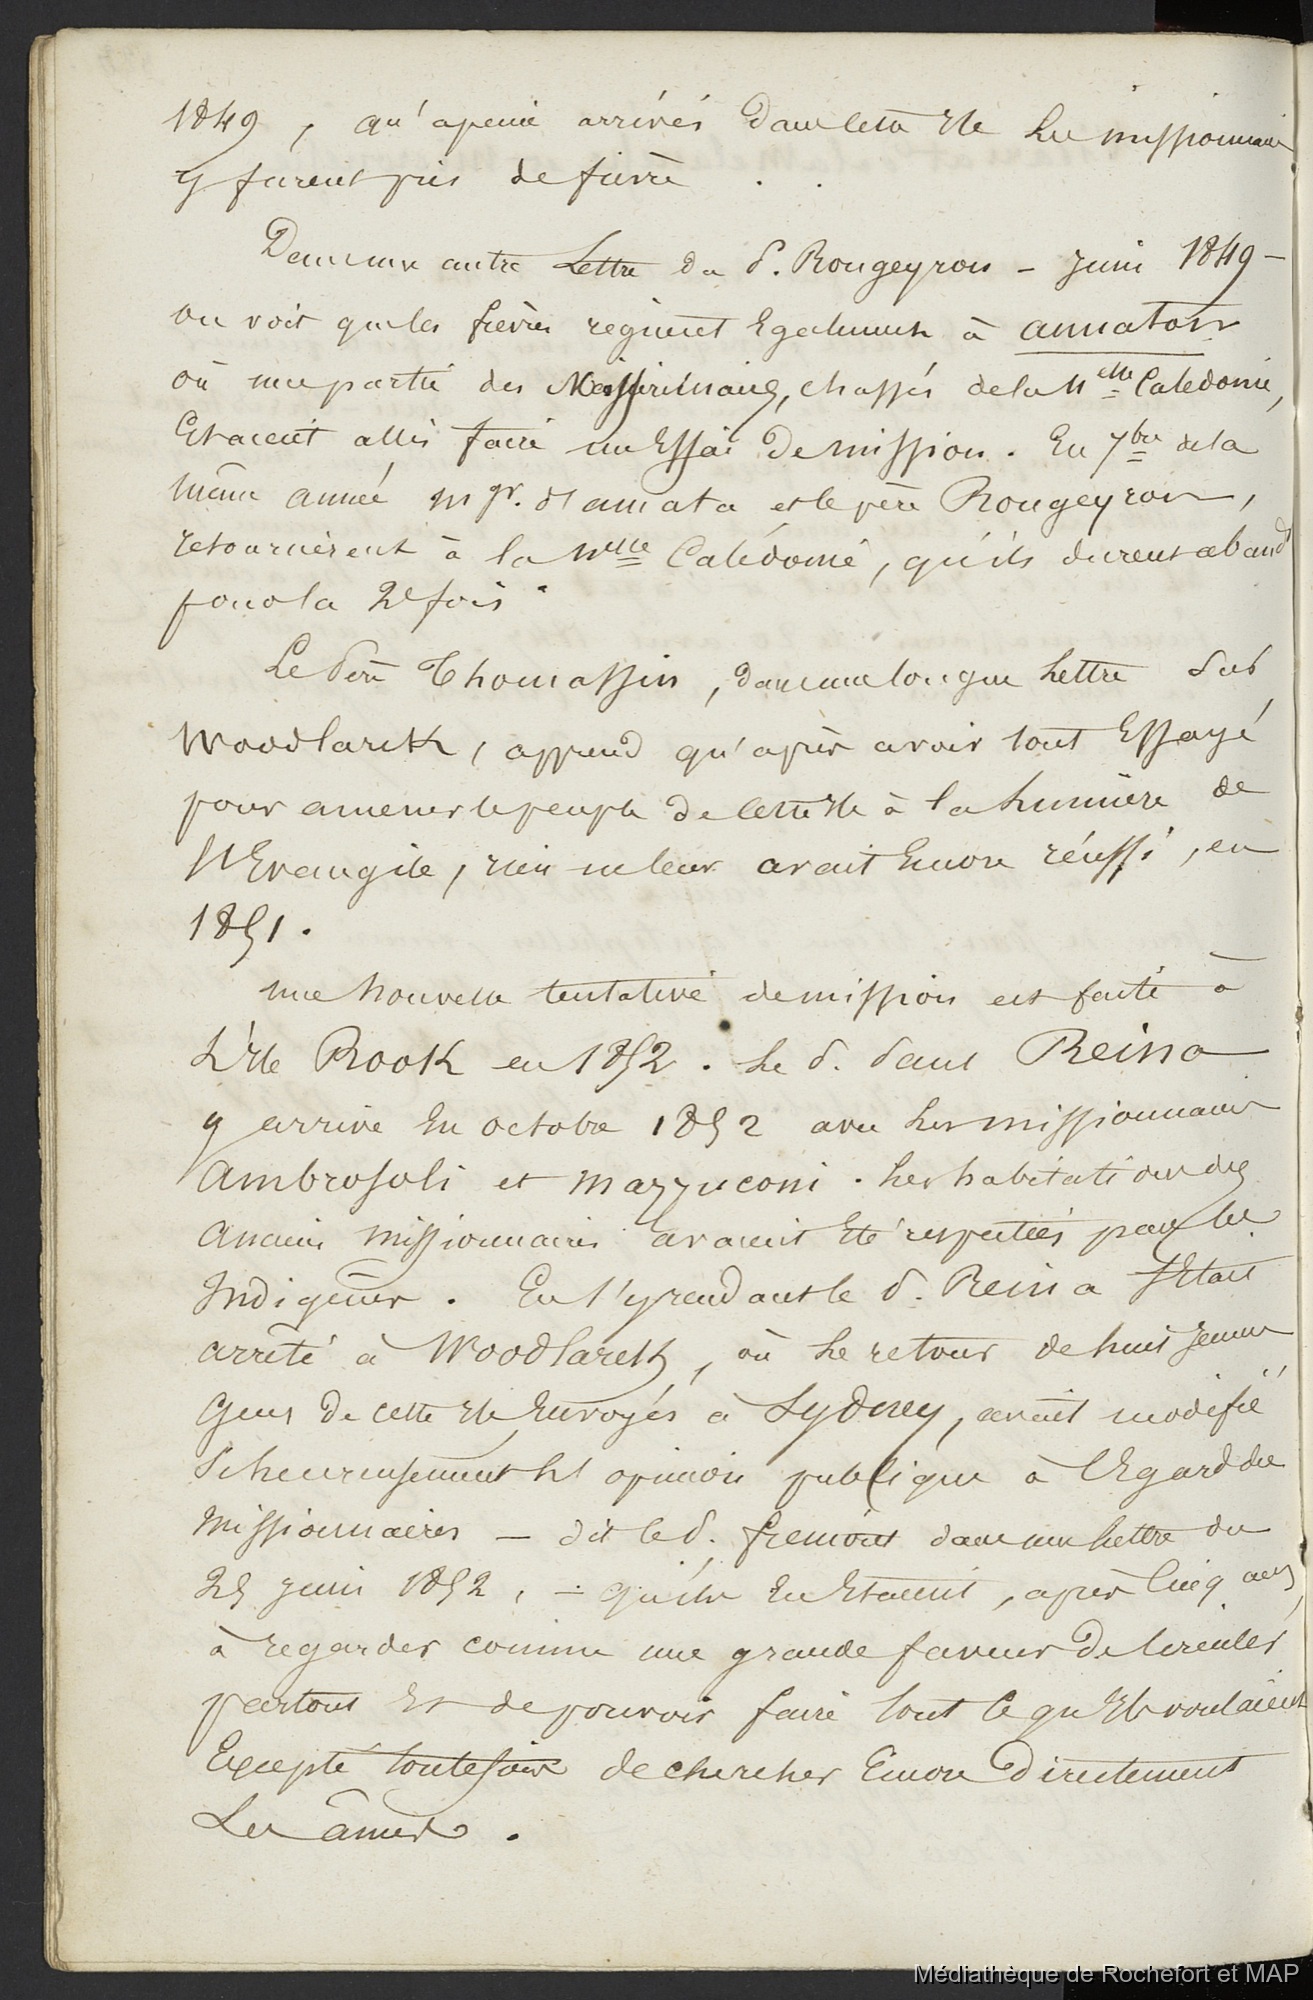 1849, qu'apeine arrivés dans cette Ile les missionnaires
y furent pris de fièvre . .
Dans une autre Lettre du P. Rougeyron - Juin 1849 -
on voit que les fièvres regnent Egalement à annatom
où une partie des Missionnaires, chassés de la Nelle Caledonie,
Etaient allés faire un Essai de mission. En 7bre de la
même année Mgr. d'amata et le père Rougeyron,
retournèrent à la Nelle Calédonie, qu'ils durent aband
pour la 2e fois.
Le Père Thomassin, dans une longue Lettre Sur
Woodlarck, apprend qu'après avoir tout Essayé
pour amener le peuple de cette Ile à la lumière de
l'Evangile, rien ne leur avait Encore réussi, en
1851.
une nouvelle tentative de mission est faite à
L'Ile Rook en 1852. Le P. Paul Reina
y arrive En octobre 1852 avec les missionnaires
Ambrosoli et Mazzuconi. Les habitations des
anciens missionnaires avaient Eté respectées par les
Indigènes. En s'y rendant le P. Reina s'Etait
arrêté à Woodlarck, où le retour de huit jeunes
Gens de cette Ile Envoyés à Sydney, avait modifié
Si heureusement l'opinion publique à l'Egard des
missionnaires - dit le P. fremont dans une lettre du
25 juin 1852, - qu'ils En Etaient, après Cinq ans,
à regarder comme une grande faveur De circuler
partout Et de pouvoir faire tout ce qu'Ils voulaient
Excepté toutefois de chercher Encore Directement
Les âmes.
Médiathèque de Rochefort et MAP